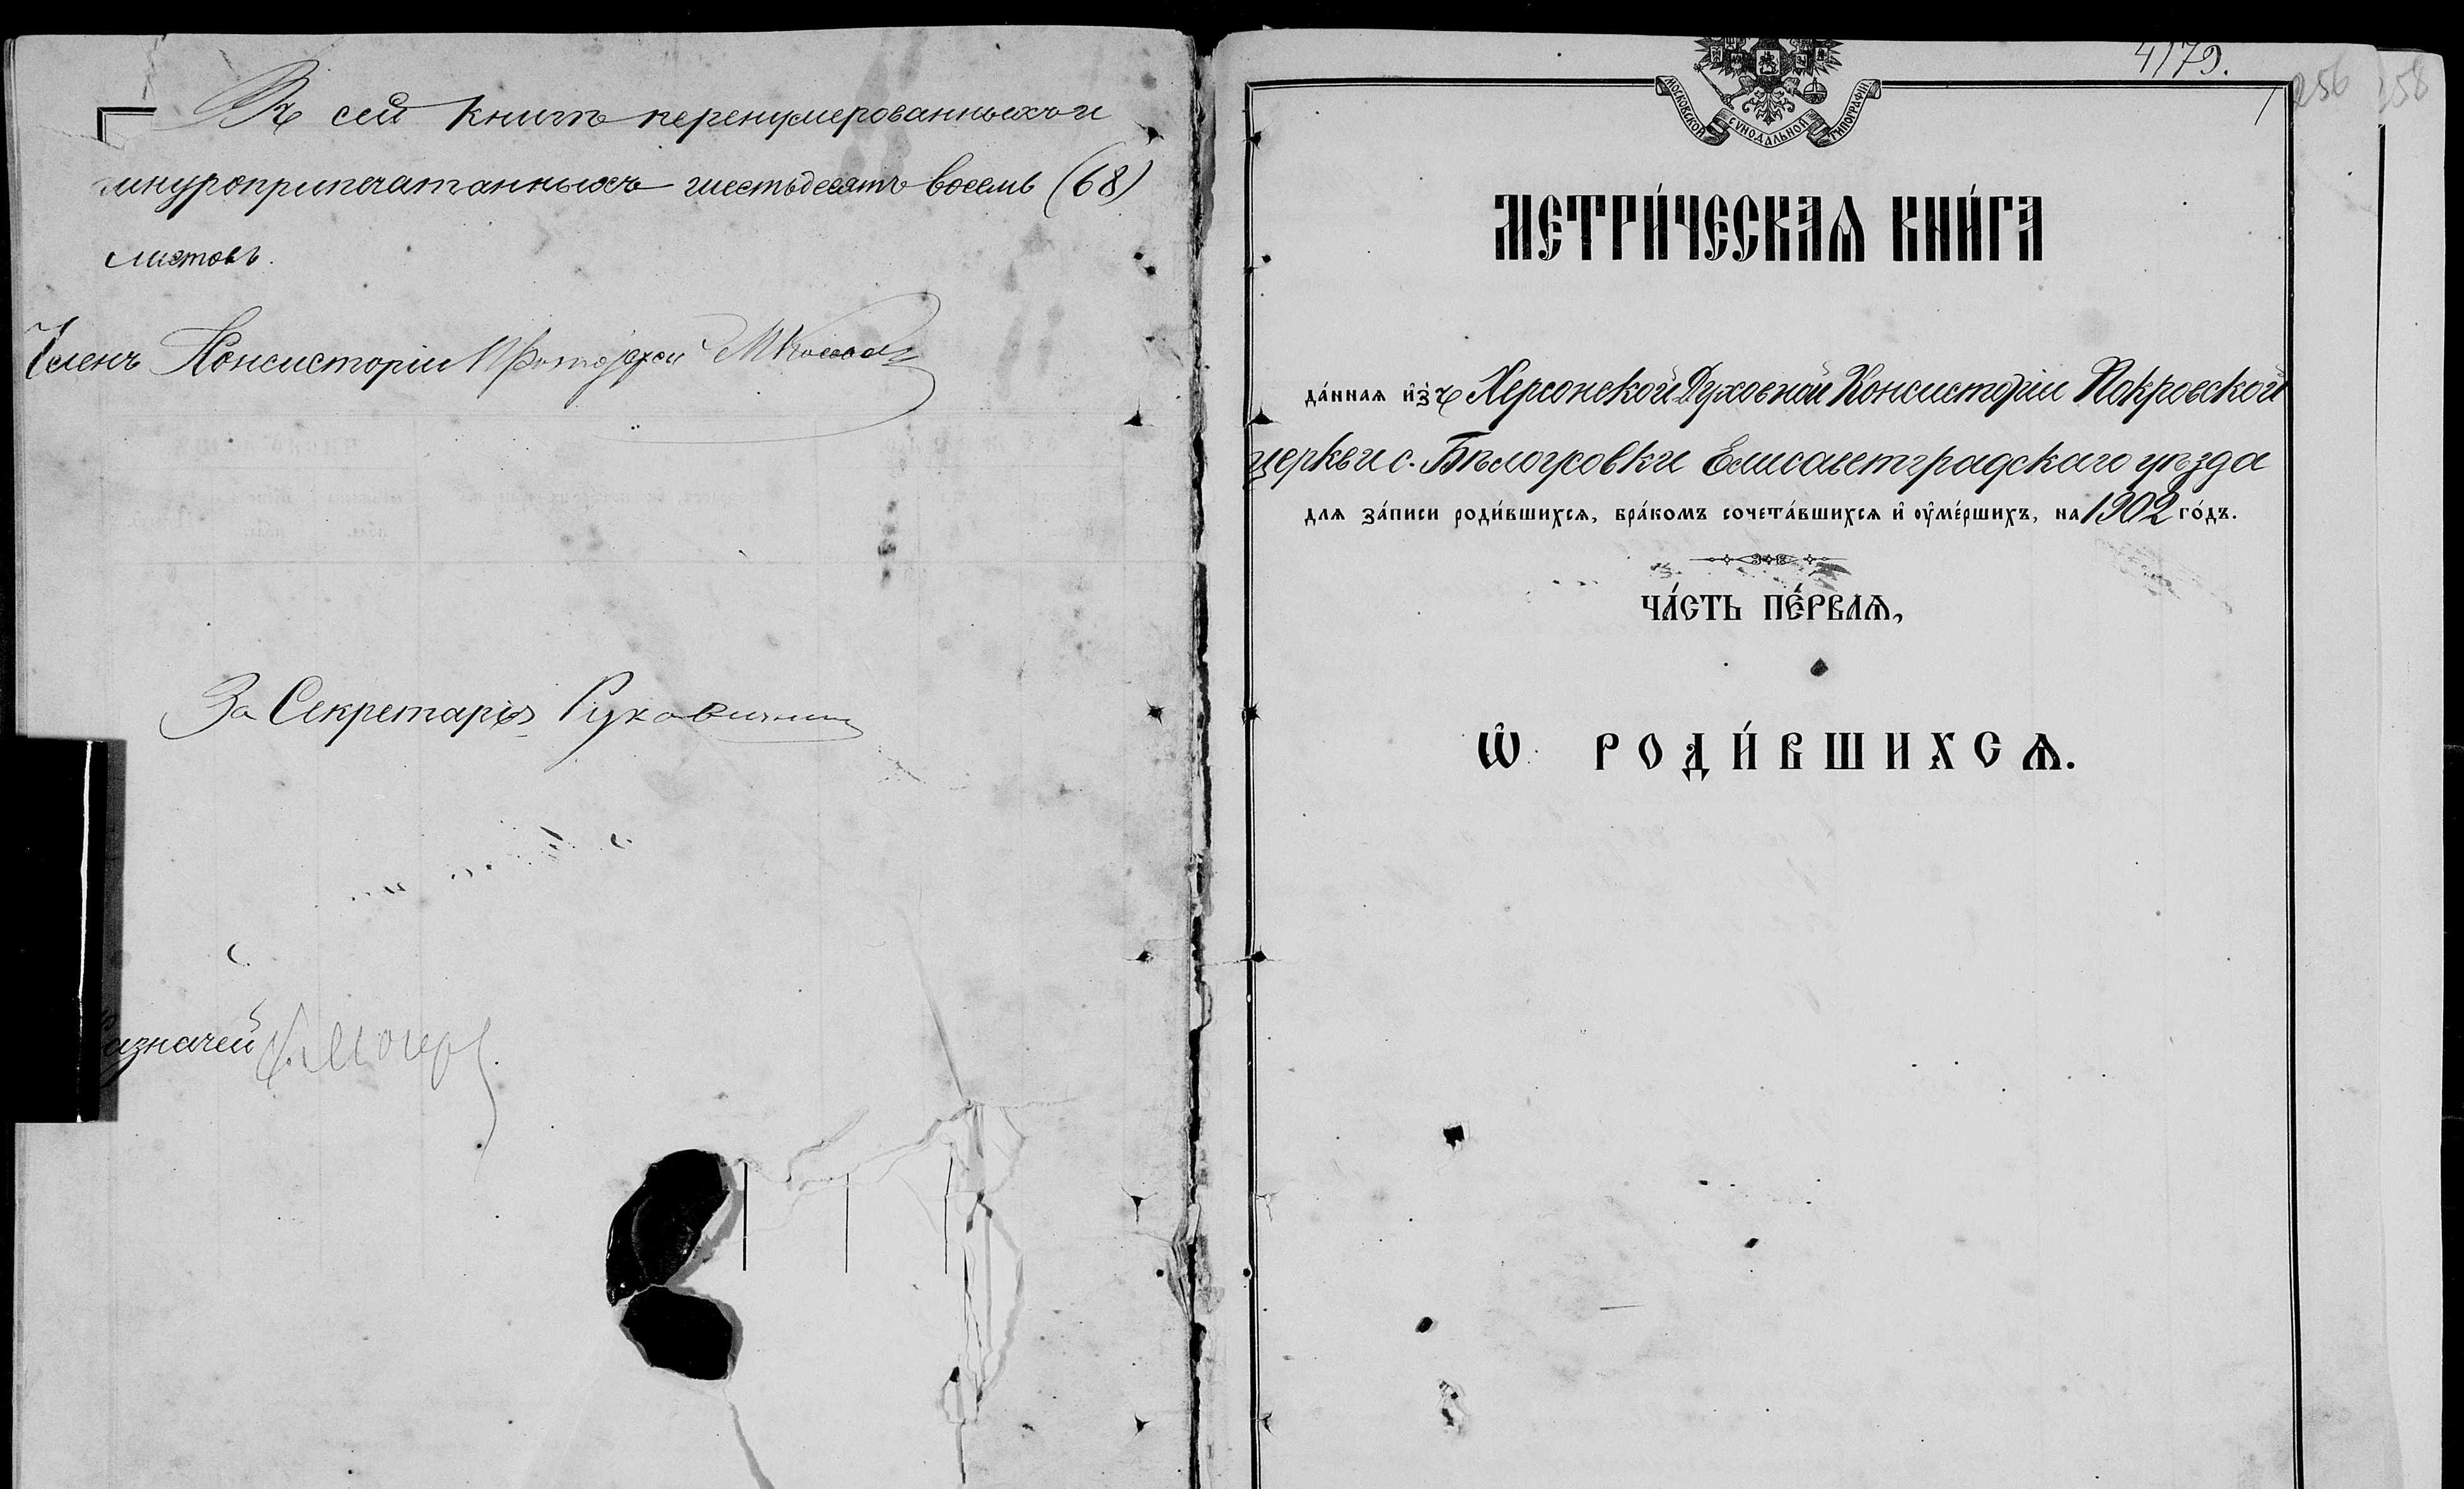 Въ сей книгѣ перенумерованныхъ и
шнуроприпечатанныхъ шестьдесятъ восемь (68)
листовъ.
Членъ Консисторіи Протоіерей
За Секретаря
азначей
4179.
256
258
МОСКОВСКОЙ СѴНОДАЛЬНОЙ ТИПОГРАФІИ
1
МЕТРИ́ЧЕСКАѦ КНИ́ГА
да́ннаѧ и҆зъ Херсонской Духовной Консисторіи Покровской
церкви с. Бѣлогровки Елисаветградскаго уѣзда
длѧ за́писи роди́вшихсѧ, бра́комъ сочета́вшихсѧ и҆ оу҆ме́ршихъ, на 1902 го́дъ.
ЧА́СТЬ ПЕ́РВАѦ,
Ѡ҆ РОДИ́ВШИХСѦ.